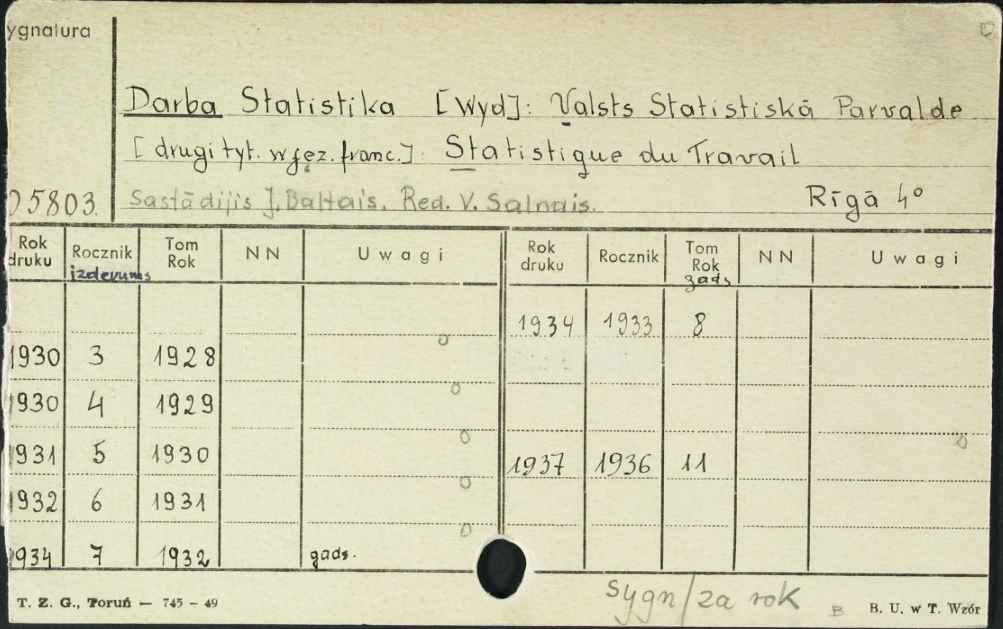 ygnatura
Darba Statistika [Wyd]: Valsts Statistiskā Parvalde
[drugi tyt. w jęz. franc.]: Statistique du Travail
05803. Sastādijis J. Baltais. Red. V. Salnais. Rīgā 4°
Rok druku Rocznik izdevums Tom Rok NN Uwagi Rok druku Rocznik Tom Rok gads NN Uwagi
1934 1933 8
1930 3 1928
1930 4 1929
1931 5 1930
1937 1936 11
1932 6 1931
1934 7 1932 gads.
sygn/za rok
T. Z. G., Toruń — 745 – 49 B B. U. w T. Wzór